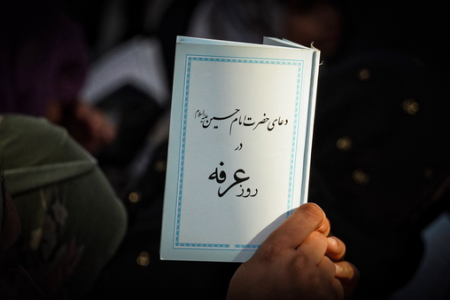 دعای حضرت امام حسین علیه‌السلام
در
روز عرفه